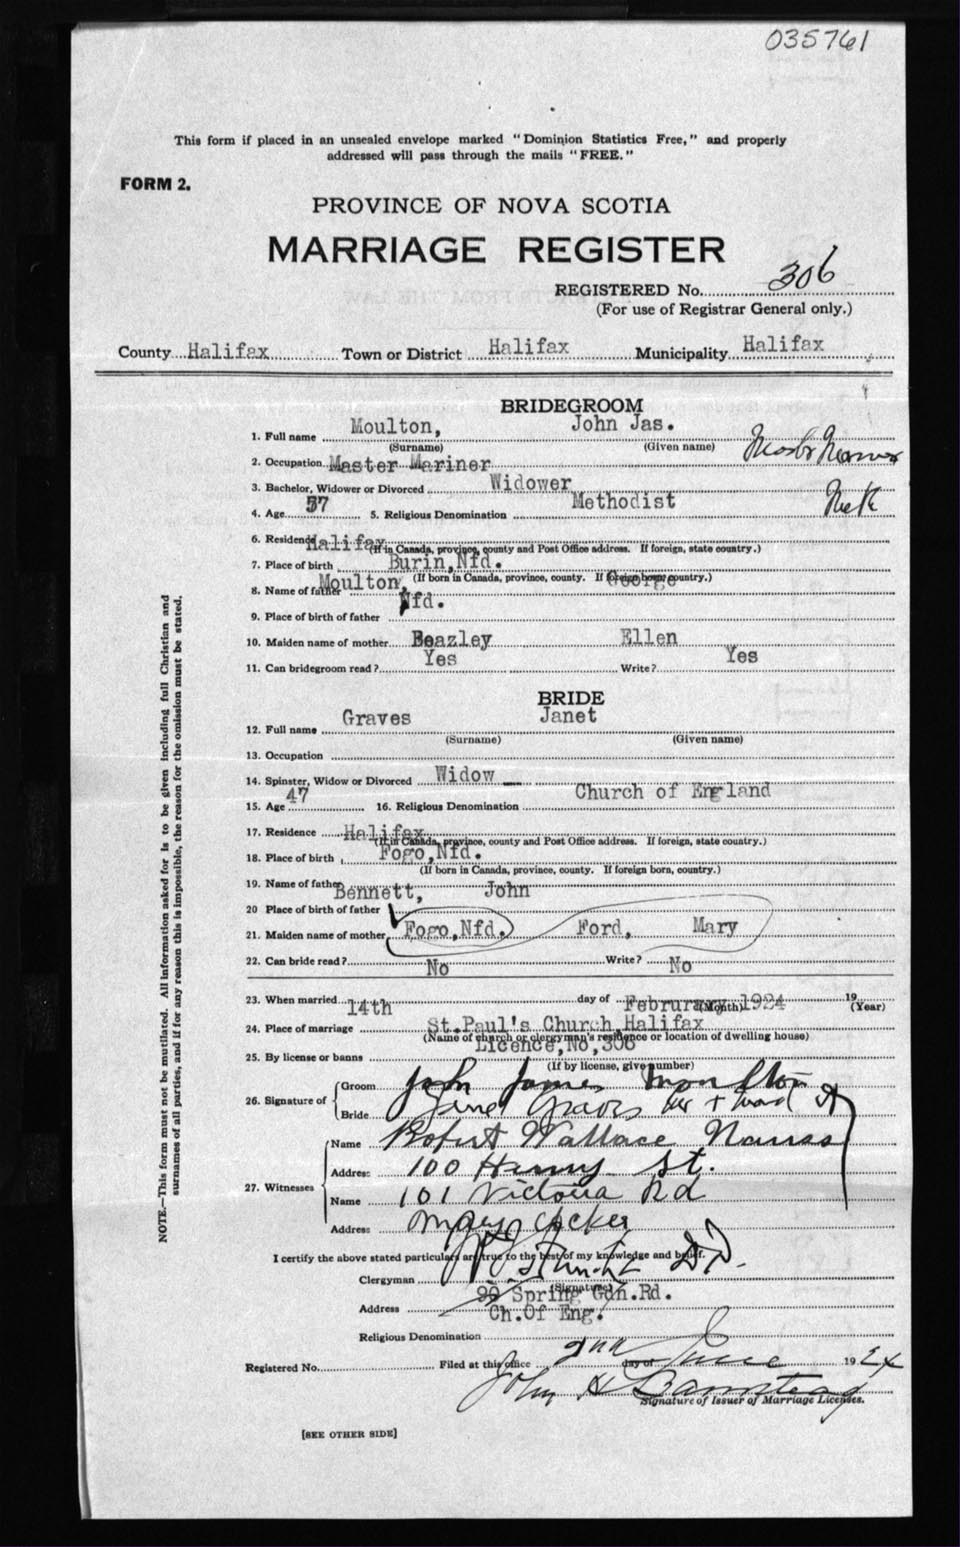 035761
This form if placed in an unsealed envelope marked "Dominion Statistics Free," and properly
addressed will pass through the mails "FREE."
FORM 2.
PROVINCE OF NOVA SCOTIA
MARRIAGE REGISTER
REGISTERED No. 306
(For use of Registrar General only.)
County Halifax Town or District Halifax Municipality Halifax
BRIDEGROOM
1. Full name Moulton, John Jas.
(Surname) (Given name)
2. Occupation Master Mariner
3. Bachelor, Widower or Divorced Widower
4. Age 57 5. Religious Denomination Methodist
6. Residence Halifax
(If in Canada, province, county and Post Office address. If foreign, state country.)
7. Place of birth Burin, Nfd.
(If born in Canada, province, county. If foreign born, country.)
8. Name of father Moulton, George
9. Place of birth of father Nfd.
10. Maiden name of mother Beazley Ellen
11. Can bridegroom read? Yes Write? Yes
BRIDE
12. Full name Graves Janet
(Surname) (Given name)
13. Occupation
14. Spinster, Widow or Divorced Widow
15. Age 47 16. Religious Denomination Church of England
17. Residence Halifax
(If in Canada, province, county and Post Office address. If foreign, state country.)
18. Place of birth Fogo, Nfd.
(If born in Canada, province, county. If foreign born, country.)
19. Name of father Bennett, John
20 Place of birth of father
21. Maiden name of mother Fogo, Nfd. Ford, Mary
22. Can bride read? No Write? No
23. When married 14th day of Februrary 1924 19
(Month) (Year)
24. Place of marriage St. Paul's Church Halifax
(Name of church or clergyman's residence or location of dwelling house)
25. By license or banns Licence, No, 306
(If by license, give number)
26. Signature of Groom John James Moulton
Bride her + mark
27. Witnesses Name Robert Wallace
Address 100 Henry St.
Name 101 Victoria Rd
Address Mary
I certify the above stated particulars are true to the best of my knowledge and belief.
Clergyman
(Signature)
Address 90 Spring Gdn. Rd.
Ch. Of Eng.
Religious Denomination
Registered No. Filed at this office 2nd day of June 1924
John H
Signature of Issuer of Marriage Licenses.
[SEE OTHER SIDE]
NOTE.—This form must not be mutilated. All information asked for is to be given including full Christian and
surnames of all parties, and if for any reason this is impossible, the reason for the omission must be stated.